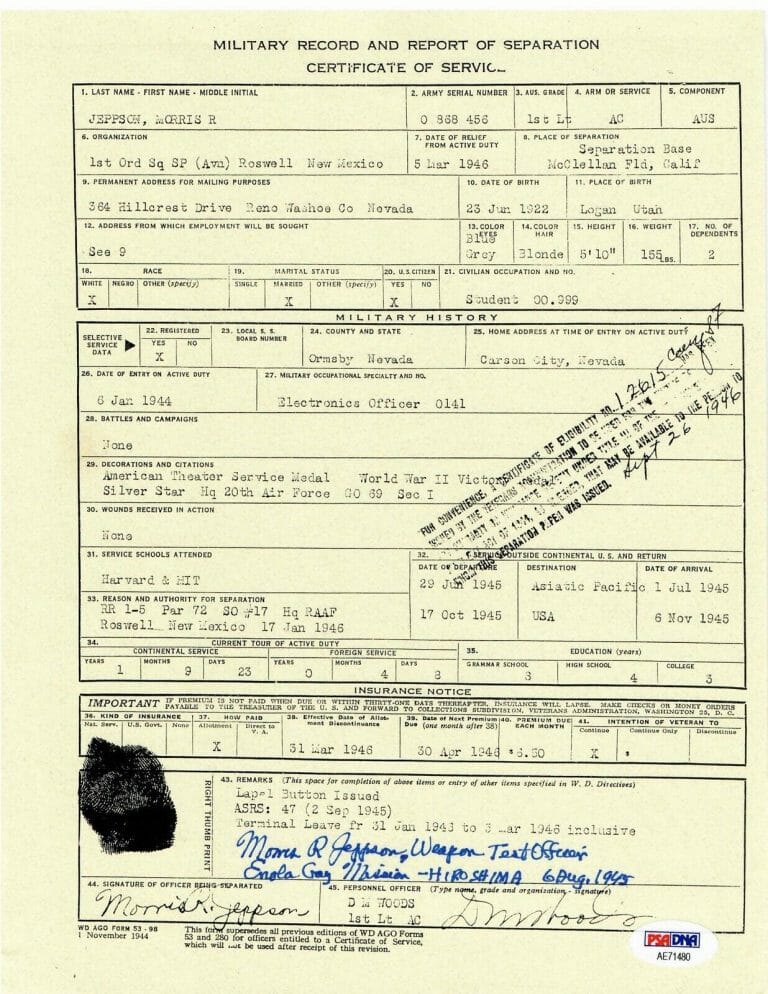 MILITARY RECORD AND REPORT OF SEPARATION
CERTIFICATE OF SERVIC
1. LAST NAME - FIRST NAME - MIDDLE INITIAL 2. ARMY SERIAL NUMBER 3. AUS. GRADE 4. ARM OR SERVICE 5. COMPONENT
JEPPSON, MORRIS R O 868 456 1st Lt AC AUS
6. ORGANIZATION 7. DATE OF RELIEF FROM ACTIVE DUTY 8. PLACE OF SEPARATION
Separation Base
1st Ord Sq SP (Avn) Roswell New Mexico 5 Mar 1946 McClellan Fld, Calif
9. PERMANENT ADDRESS FOR MAILING PURPOSES 10. DATE OF BIRTH 11. PLACE OF BIRTH
364 Hillcrest Drive Reno Washoe Co Nevada 23 Jun 1922 Logan Utah
12. ADDRESS FROM WHICH EMPLOYMENT WILL BE SOUGHT 13. COLOR EYES 14. COLOR HAIR 15. HEIGHT 16. WEIGHT 17. NO. OF DEPENDENTS
Blue
See 9 Grey Blonde 5'10" 155 LBS. 2
18. RACE 19. MARITAL STATUS 20. U.S. CITIZEN 21. CIVILIAN OCCUPATION AND NO.
WHITE NEGRO OTHER (specify) SINGLE MARRIED OTHER (specify) YES NO
X X X Student 00.999
MILITARY HISTORY
SELECTIVE SERVICE DATA 22. REGISTERED 23. LOCAL S. S. BOARD NUMBER 24. COUNTY AND STATE 25. HOME ADDRESS AT TIME OF ENTRY ON ACTIVE DUTY
YES NO
X Ormsby Nevada Carson City, Nevada
26. DATE OF ENTRY ON ACTIVE DUTY 27. MILITARY OCCUPATIONAL SPECIALTY AND NO.
6 Jan 1944 Electronics Officer 0141
28. BATTLES AND CAMPAIGNS
None
29. DECORATIONS AND CITATIONS
American Theater Service Medal World War II Victory Medal
Silver Star Hq 20th Air Force GO 69 Sec I
FOR CONVENIENCE, A CERTIFICATE OF ELIGIBILITY NO. 12615
Sept 26 1946
30. WOUNDS RECEIVED IN ACTION
None
31. SERVICE SCHOOLS ATTENDED 32. SERVICE OUTSIDE CONTINENTAL U. S. AND RETURN
DATE OF DEPARTURE DESTINATION DATE OF ARRIVAL
Harvard & MIT 29 Jun 1945 Asiatic Pacific 1 Jul 1945
33. REASON AND AUTHORITY FOR SEPARATION
RR 1-5 Par 72 SO #17 Hq RAAF 17 Oct 1945 USA 6 Nov 1945
Roswell New Mexico 17 Jan 1946
34. CURRENT TOUR OF ACTIVE DUTY 35. EDUCATION (years)
CONTINENTAL SERVICE FOREIGN SERVICE
YEARS MONTHS DAYS YEARS MONTHS DAYS GRAMMAR SCHOOL HIGH SCHOOL COLLEGE
1 9 23 0 4 8 3 4 3
INSURANCE NOTICE
IMPORTANT IF PREMIUM IS NOT PAID WHEN DUE OR WITHIN THIRTY-ONE DAYS THEREAFTER, INSURANCE WILL LAPSE. MAKE CHECKS OR MONEY ORDERS
PAYABLE TO THE TREASURER OF THE U. S. AND FORWARD TO COLLECTIONS SUBDIVISION, VETERANS ADMINISTRATION, WASHINGTON 25, D. C.
36. KIND OF INSURANCE 37. HOW PAID 38. Effective Date of Allotment Discontinuance 39. Date of Next Premium Due (one month after 38) 40. PREMIUM DUE EACH MONTH 41. INTENTION OF VETERAN TO
Nat. Serv. U.S. Govt. None Allotment Direct to V. A. Continue Continue Only Discontinue
X 31 Mar 1946 30 Apr 1946 $6.50 X $
RIGHT THUMB PRINT
43. REMARKS (This space for completion of above items or entry of other items specified in W. D. Directives)
Lapel Button Issued
ASRS: 47 (2 Sep 1945)
Terminal Leave fr 31 Jan 1946 to 5 mar 1946 inclusive
Morris R Jeppson, Weapon Test Officer
Enola Gay Mission - HIROSHIMA 6 Aug. 1945
44. SIGNATURE OF OFFICER BEING SEPARATED 45. PERSONNEL OFFICER (Type name, grade and organization - signature)
Morris R. Jeppson D M WOODS D M Woods
1st Lt AC
WD AGO FORM 53 - 98
1 November 1944
This form supersedes all previous editions of WD AGO Forms
53 and 280 for officers entitled to a Certificate of Service,
which will not be used after receipt of this revision.
PSA DNA
AE71480